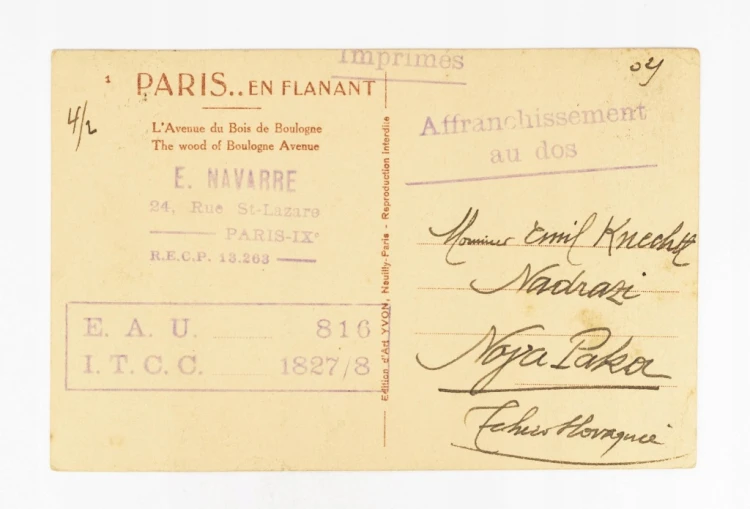 Imprimés
1 PARIS.. EN FLANANT
L'Avenue du Bois de Boulogne
The wood of Boulogne Avenue
4/2
E. NAVARRE
24, Rue St-Lazare
PARIS-IXe
R.E.C.P. 13.263
E. A. U. 816
I. T. C. C. 1827/8
Edition d'Art YVON, Neuilly-Paris - Reproduction interdite
Affranchissement
au dos
Monsieur Emil Knecht
Nadrazi
Noya Paka
Tchecoslovaquie